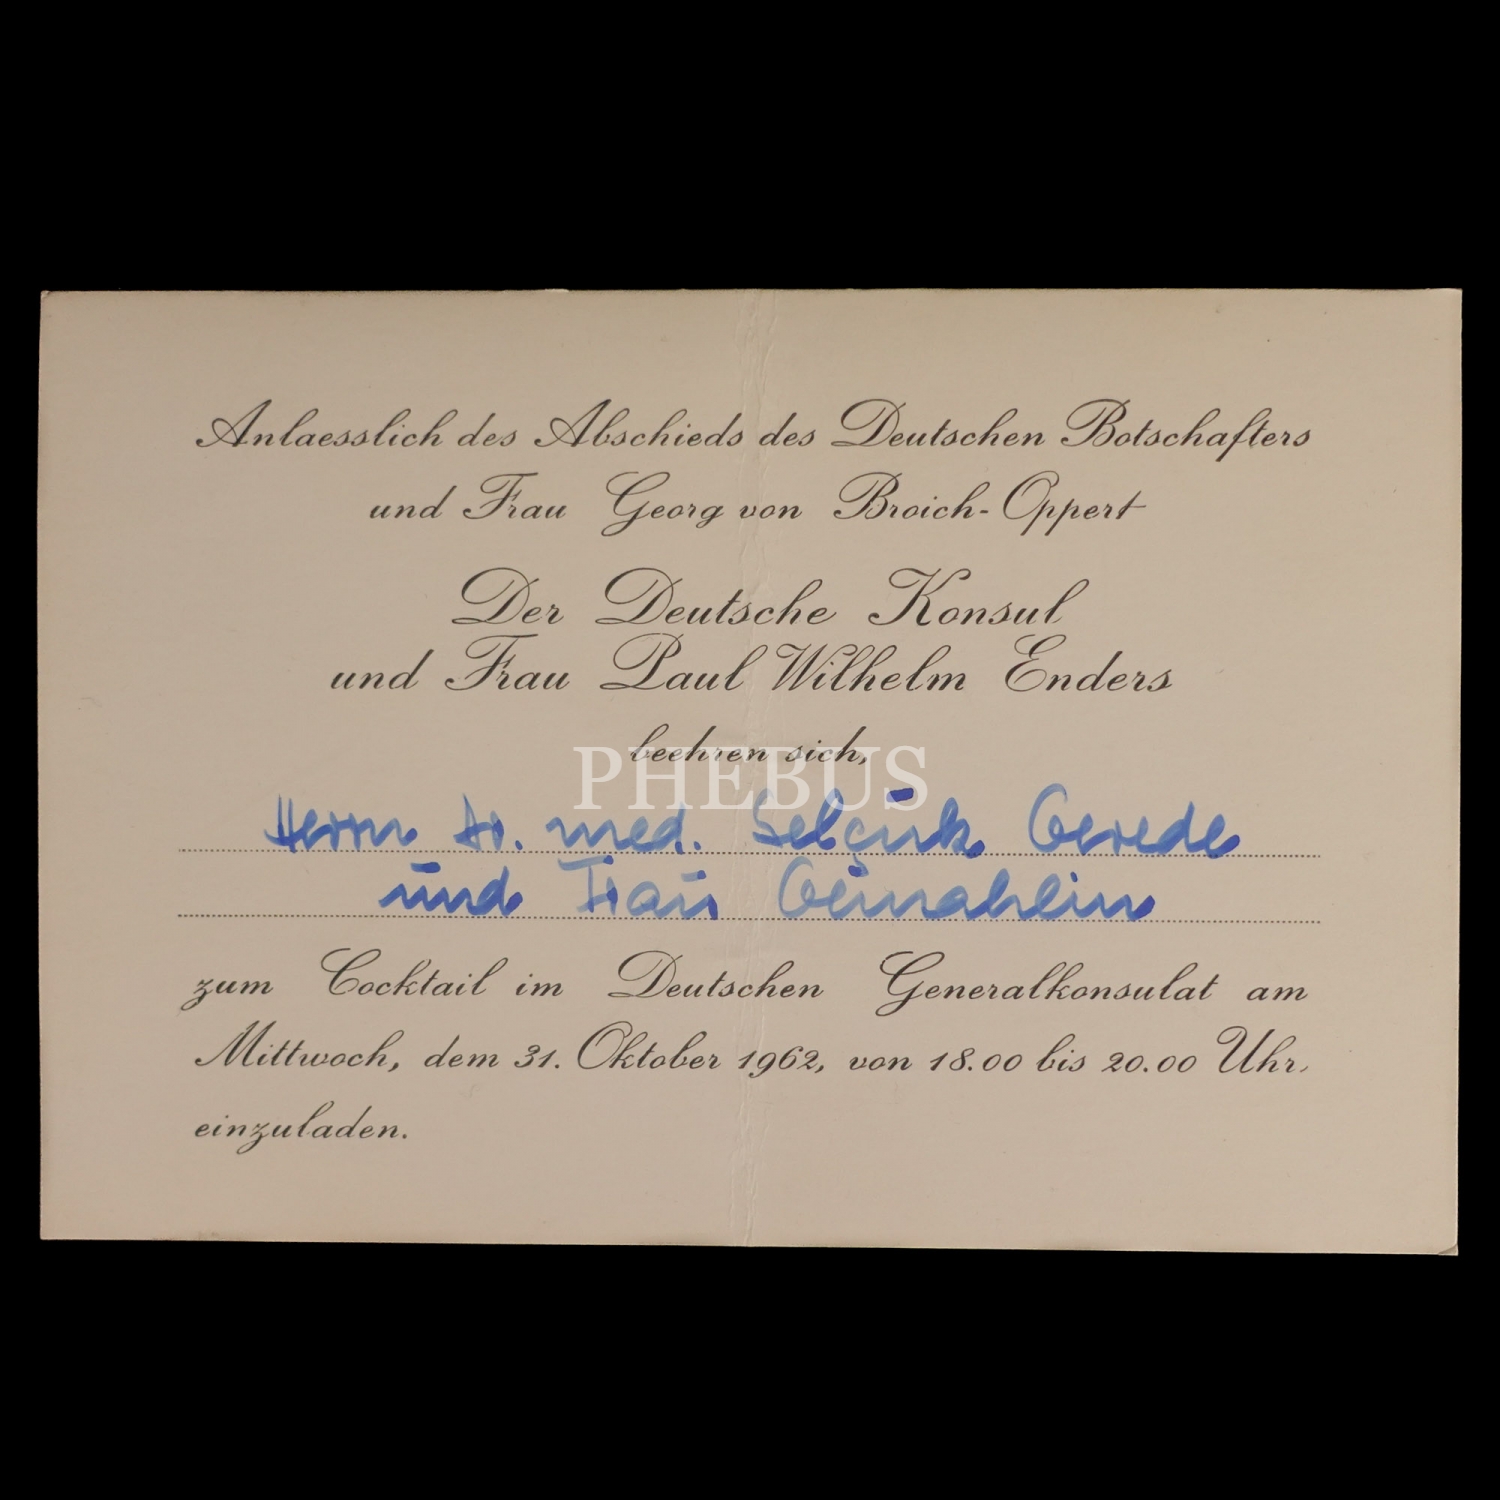 Anlaesslich des Abschieds des Deutschen Botschafters
und Frau Georg von Broich-Oppert
Der Deutsche Konsul
und Frau Paul Wilhelm Enders
beehren sich,
PHEBUS
Herrn Dr. med. Selçuk Gerede
und Frau Gemahlin
zum Cocktail im Deutschen Generalkonsulat am
Mittwoch, dem 31. Oktober 1962, von 18.00 bis 20.00 Uhr,
einzuladen.